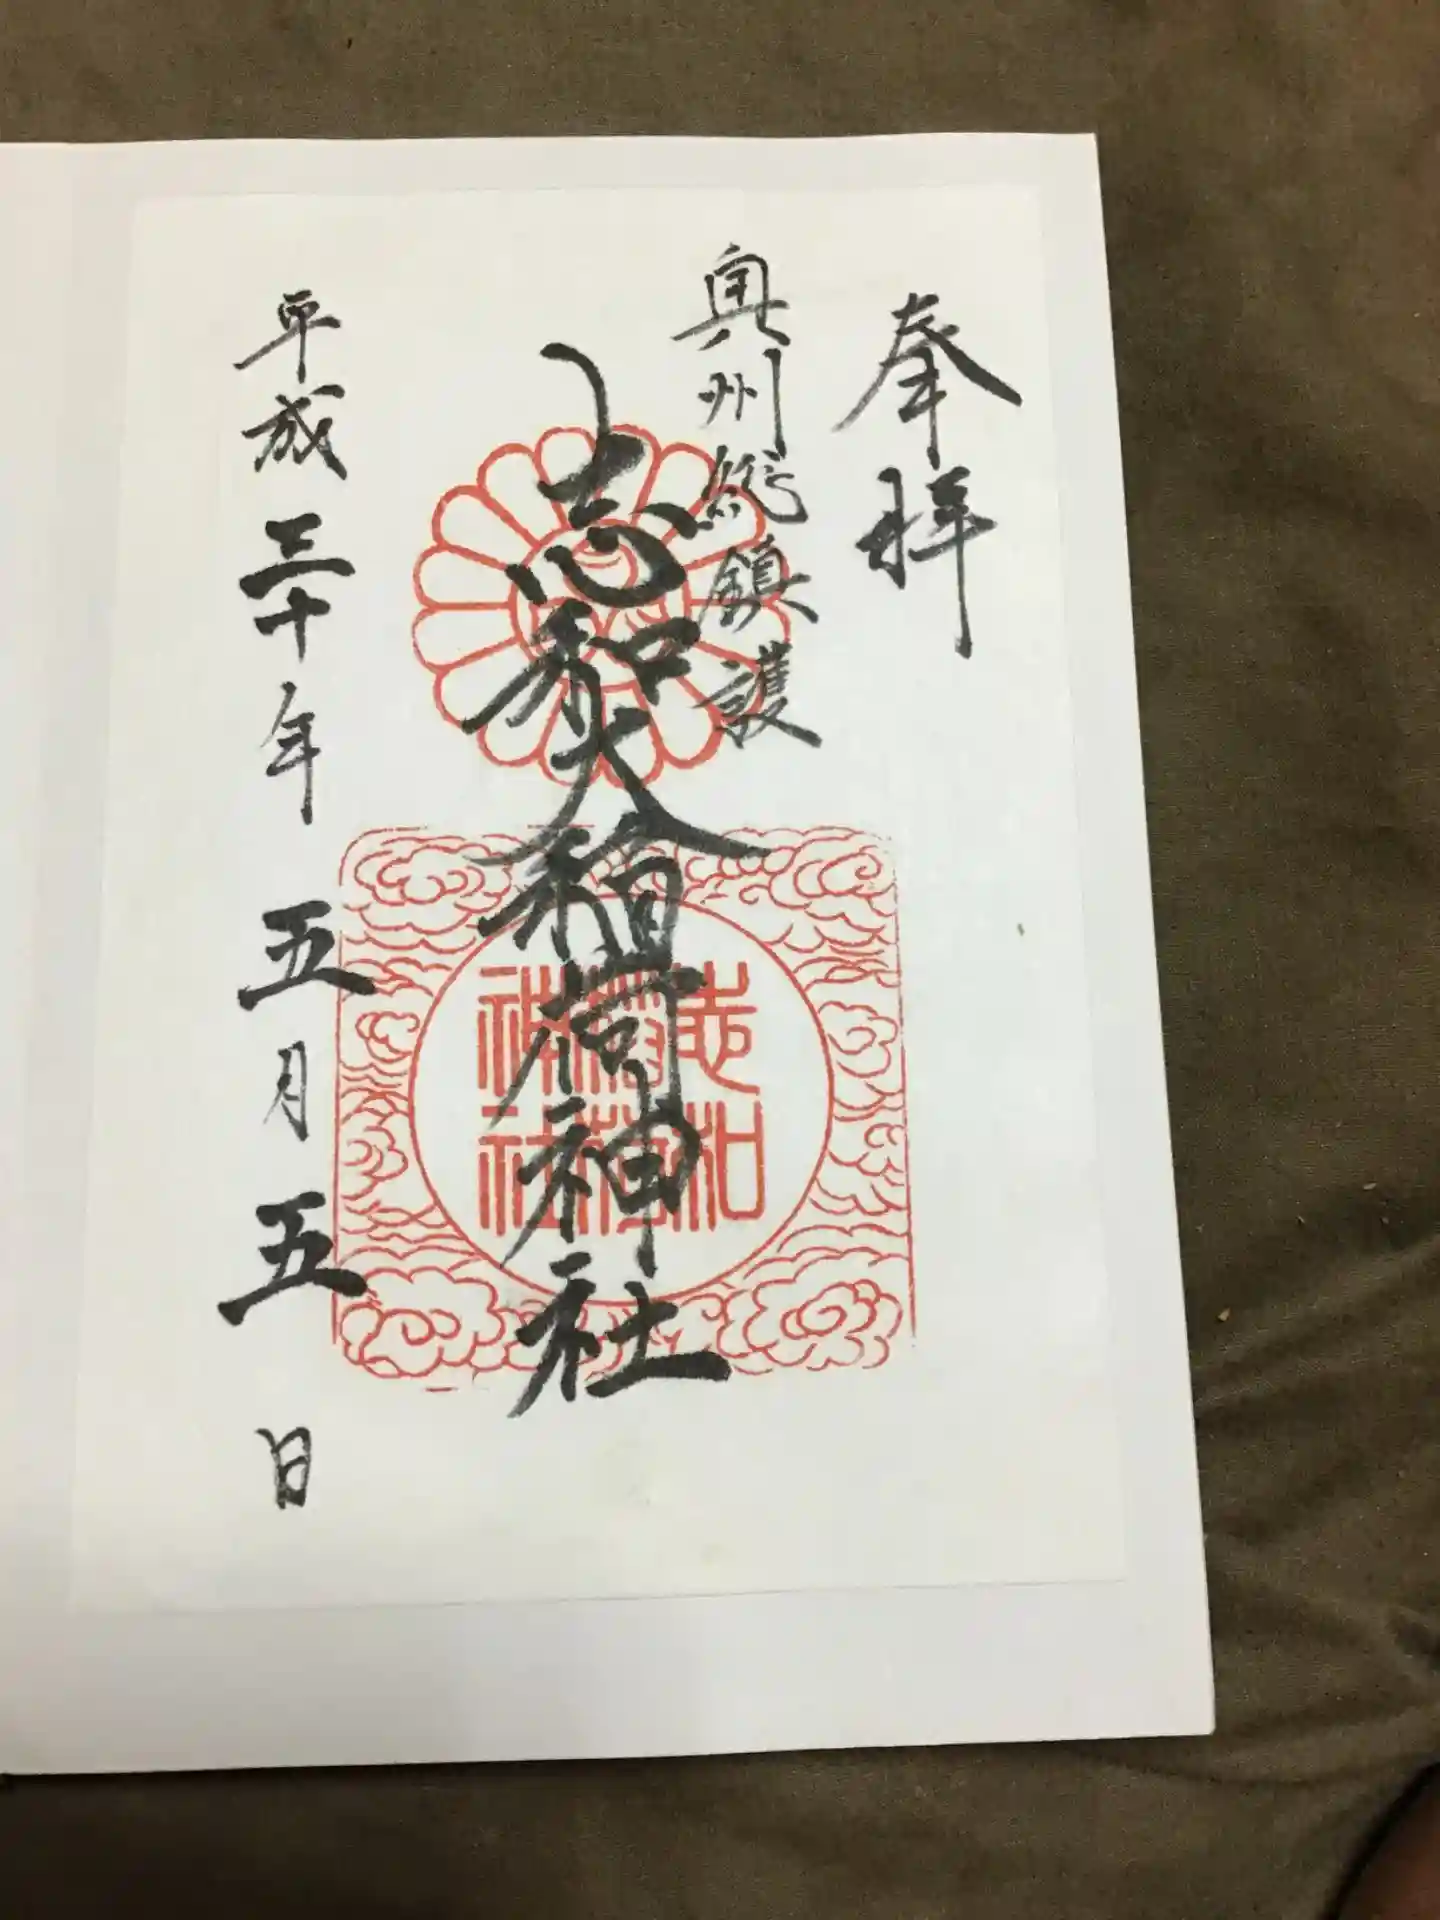 奉拝
奥州総鎮護
志和大稲荷神社
平成三十年五月五日
志和
稲荷
神社